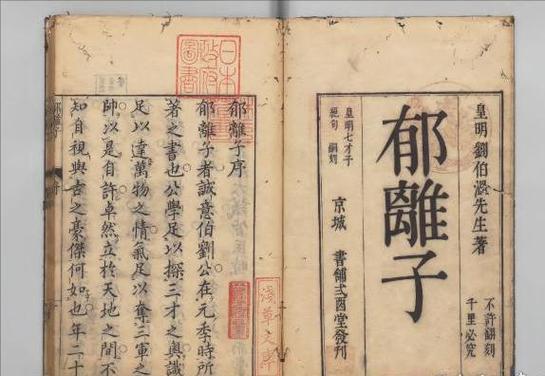 皇明 劉伯溫先生著
不許翻刻
千里必究
郁離子
京城 書舗弍酉堂發刊
皇明七才子
絶句 嗣刻
日本
政府
圖書
淺草文庫
郁離子序
郁離子者誠意伯劉公在元季時所
著之書也公學足以探三才之奧識
足以達萬物之情氣足以奪三軍之
帥以是自許卓然立於天地之間不
知自視與古之豪傑何如也年二十